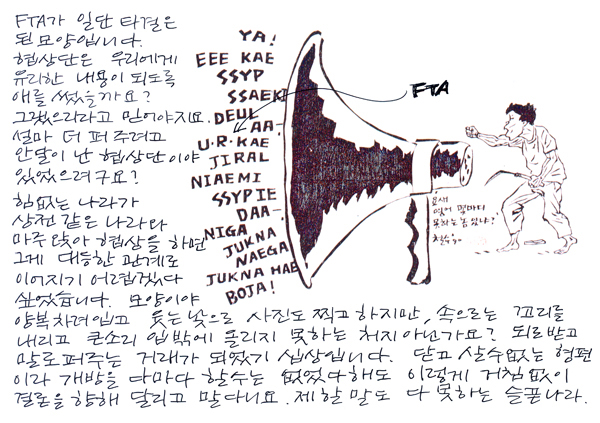 FTA가 일단 타결은
된 모양입니다.
협상단은 우리에게
유리한 내용이 되도록
애를 썼을까요?
그랬으리라고 믿어야지요.
설마 더 퍼 주려고
안달이 난 협상단이야
있었으려구요?
힘없는 나라가
상전 같은 나라와
마주 앉아 협상을 하면
그게 대등한 관계로
이어지기 어렵겠다
싶었습니다. 모양이야
양복차려입고 웃는 낯으로 사진도 찍고 하지만, 속으로는 꼬리를
내리고 큰소리 입밖에 올리지 못하는 처지 아닌가요? 되로 받고
말로 퍼주는 거래가 되었기 십상입니다. 닫고 살수 없는 형편
이라 개방을 다마다 할수는 없었다해도 이렇게 거침없이
결론을 향해 달리고 말다니요. 제 할 말도 다 못하는 슬픈나라.
YA!
EEE KAE
SSYP
SSAEKI
DEUL
AA-
U·R·KAE
JIRAL
NIAEMI
SSYPIE
DAA-
NIGA
JUKNA
NAEGA
JUKNA HAE
BOJA!
FTA
요새
있어 말마디
못하는 놈 있나?
철수